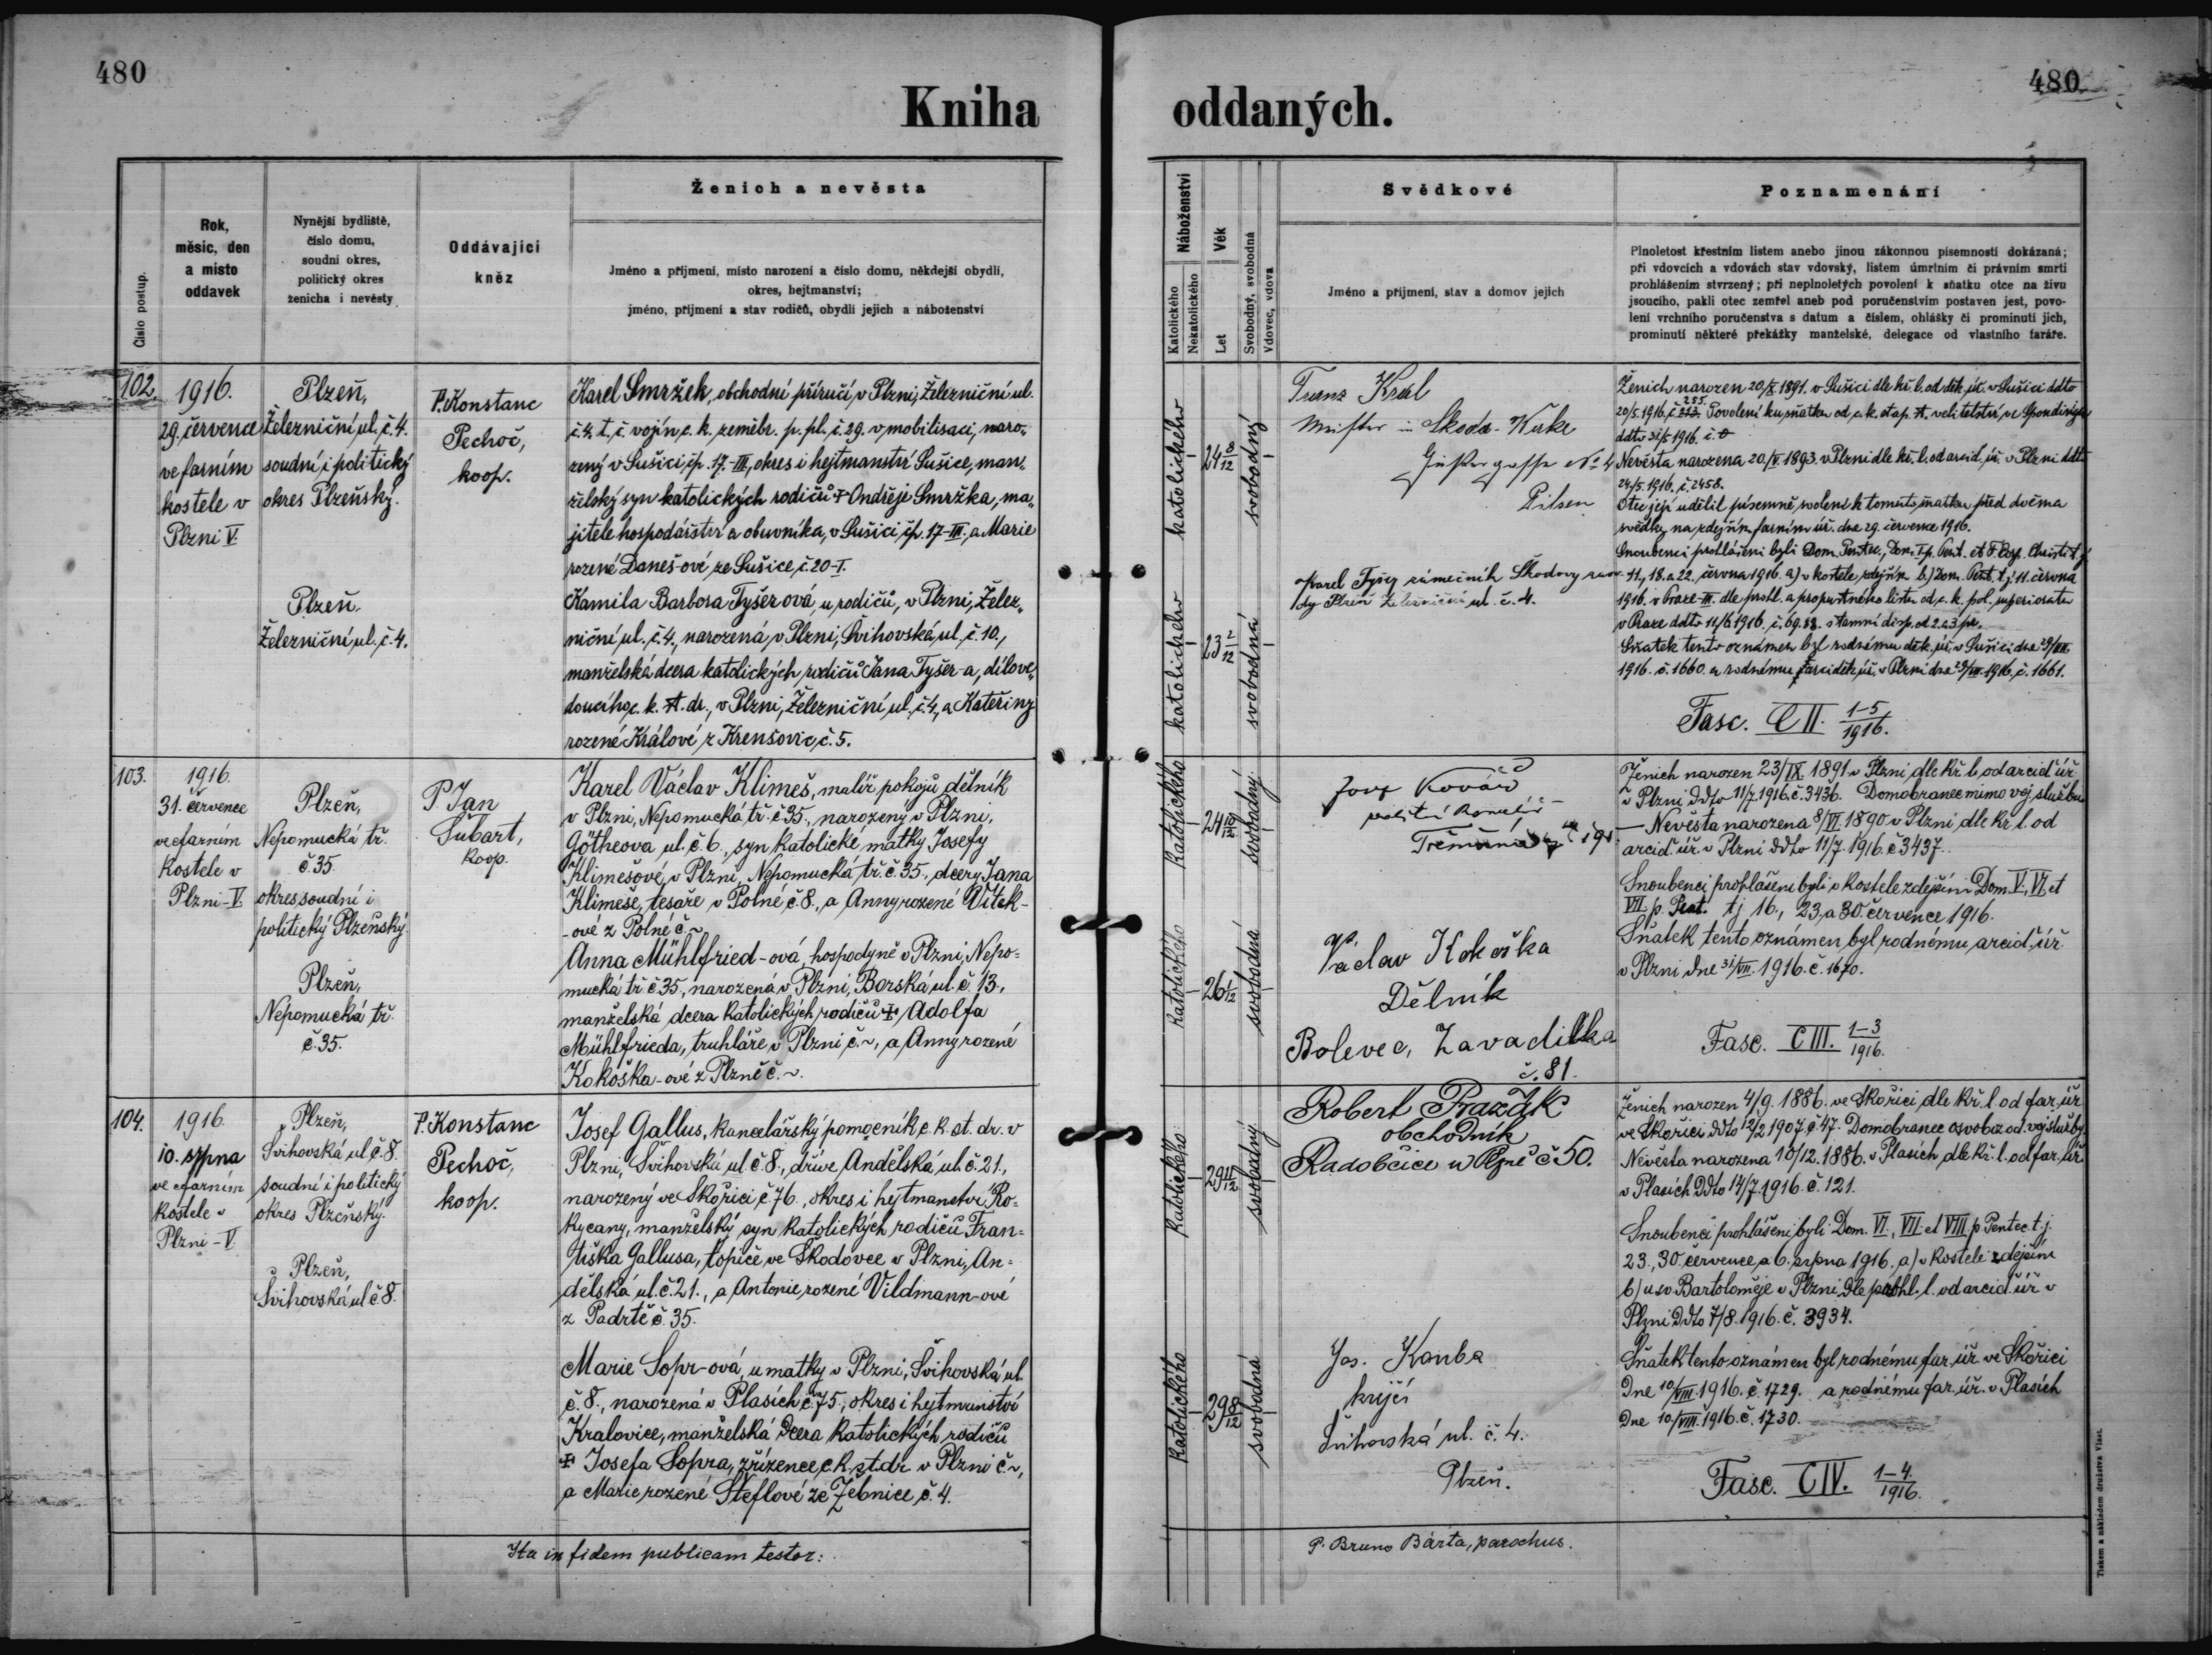 480
480
Kniha oddaných.
Číslo postup.
Rok,
měsíc, den
a místo
oddavek
Nynější bydliště,
číslo domu,
soudní okres,
politický okres
ženicha i nevěsty
Oddávající
kněz
Ženich a nevěsta
Jméno a příjmení, místo narození a číslo domu, někdejší obydlí,
okres, hejtmanství;
jméno, příjmení a stav rodičů, obydlí jejich a náboženství
Náboženství
Katolického
Nekatolického
Věk
Let
Svobodný, svobodná
Vdovec, vdova
Svědkové
Jméno a příjmení, stav a domov jejich
Poznamenání
Plnoletost křestním listem anebo jinou zákonnou písemností dokázaná;
při vdovcích a vdovách stav vdovský, listem úmrtním či právním smrti
prohlášením stvrzený; při neplnoletých povolení k sňatku otce na živu
jsoucího, pakli otec zemřel aneb pod poručenstvím postaven jest, povo-
lení vrchního poručenstva s datum a číslem, ohlášky či prominutí jich,
prominutí některé překážky manželské, delegace od vlastního faráře.
102.
1916.
29. července
ve farním
kostele v
Plzni V.
Plzeň,
Železniční ul. č. 4.
soudní i politický
okres Plzeňský.
Plzeň.
Železniční ul. č. 4.
P. Konstanc
Pechoč,
koop.
Karel Smržek, obchodní příručí, v Plzni, Železniční ul.
č. 4. t. č. vojín c. k. zeměbr. p. pl. č. 29. v mobilisaci, naro-
zený v Sušici, čp. 17.-III, okres i hejtmanství Sušice, man-
želský syn katolických rodičů Ondřeje Smržka, ma-
jitele hospodářství a obuvníka, v Sušici čp. 17-III., a Marie
rozené Daneš-ové ze Sušice, č. 20-I.
Kamila Barbora Tyšerová u rodičů, v Plzni, Želez-
niční ul. č. 4., narozená v Plzni, Švihovská, ul. č. 10.,
manželská dcera katolických rodičů Jana Tyšer-a, dílove-
doucího c. k. st. dr., v Plzni, Železniční ul. č. 4, a Kateřiny
rozené Králové z Krenšovic, č. 5.
katolického
24 8/12
svobodný
katolického
23 2/12
svobodná
Franz Kral
Meister in Skoda-Werke
Pilsen
Karel Tyšer zámečník Škodovy
Plzeň Železniční ul. č. 4.
Ženich narozen 20/X. 1891. v Sušici dle kř. l. od děk. úř. v Sušici ddto
20/5. 1916. č. 255. Povolení ku sňatku od c. k. etap. st. velitelství
ddto 31/5 1916. č. 0
Nevěsta narozena 20/V. 1893. v Plzni dle kř. l. od arcid. úř. v Plzni ddto
24/5. 1916. č. 2458.
Otec její udělil písemně svolení k tomuto sňatku před dvěma
svědky na zdejším farním úř. dne 29. července 1916.
Snoubenci prohlášeni byli
11., 18. a 22. června 1916. a) v kostele zdejším b) Dom. Pent. t. j. 11. června
1916. v Praze-III. dle prohl. a propustného listu od c. k. pol. superiorátu
v Praze ddto 11/6. 1916.
Sňatek tento oznámen byl rodnému děk. úř. v Sušici dne 29/VII.
1916. č. 1660. a rodnému arciděk. úř. v Plzni dne 29/VII. 1916. č. 1661.
Fasc. CII. 1-5/1916.
103.
1916.
31. července
ve farním
kostele v
Plzni-V.
Plzeň,
Nepomucká tř.
č. 35.
okres soudní i
politický Plzeňský.
Plzeň,
Nepomucká tř.
č. 35.
P. Jan
Šubart,
koop.
Karel Václav Klimeš, malíř pokojů, dělník
v Plzni, Nepomucká tř. č. 35., narozený v Plzni,
Götheova ul. č. 6., syn katolické matky Josefy
Klimešové, v Plzni, Nepomucká tř. č. 35., dcery Jana
Klimeše, tesaře v Polné, č. 8., a Anny rozené Vítek-
-ové z Polné č. ~
Anna Mühlfried-ová, hospodyně v Plzni, Nepo-
mucká tř. č. 35, narozená v Plzni, Borská ul. č. 13.,
manželská dcera katolických rodičů Adolfa
Mühlfrieda, truhláře v Plzni č. ~, a Anny rozené
Kokoška-ové z Plzně č. ~.
Katolického
24 10/12
svobodný
Katolického
26 1/12
svobodná
Josef Kovář
Václav Kokoška
Dělník
Bolevec, Zavadilka
č. 81.
Ženich narozen 23/IX. 1891 v Plzni dle kř. l. od arcid. úř.
v Plzni ddto 11/7. 1916. č. 3436. Domobranec mimo voj. službu
— Nevěsta narozena 8/VI. 1890 v Plzni dle kř. l. od
arcid. úř. v Plzni ddto 11/7. 1916. č. 3437.
Snoubenci prohlášeni byli v kostele zdejším Dom. V., VI. et
VII. p. Pent. tj. 16., 23., a 30. července 1916.
Sňatek tento oznámen byl rodnému arcid. úř.
v Plzni dne 31/VII. 1916. č. 1670.
Fasc. CIII. 1-3/1916.
104.
1916.
10. srpna
ve farním
kostele v
Plzni-V.
Plzeň,
Švihovská ul. č. 8.
soudní i politický
okres Plzeňský.
Plzeň,
Švihovská ul. č. 8.
P. Konstanc
Pechoč,
koop.
Josef Gallus, kancelářský pomocník c. k. st. dr. v
Plzni, Švihovská ul. č. 8., dříve Andělská ul. č. 21.,
narozený ve Skořici, č. 76., okres i hejtmanství Ro-
kycany, manželský syn katolických rodičů Fran-
tiška Gallusa, topiče ve Škodovce v Plzni, An-
dělská ul. č. 21., a Antonie rozené Vildmann-ové
z Padrtě č. 35.
Marie Sopr-ová, u matky v Plzni, Švihovská ul.
č. 8., narozená v Plasích č. 75., okres i hejtmanství
Kralovice, manželská dcera katolických rodičů
Josefa Sopra, zřízence c. k. st. dr. v Plzni č. ~,
a Marie rozené Šteflové ze Žebnice, č. 4.
Katolického
29 11/12
svobodný
Katolického
29 8/12
svobodná
Robert Prazák
obchodník
Radobčice u Plzně č. 50.
Jos. Kouba
krejčí
Švihovská ul. č. 4.
Plzeň.
Ženich narozen 4/9. 1886. ve Skořici dle kř. l. od far. úř.
ve Skořici ddto 12/2 1907. č. 47. Domobranec osvoboz. od voj. služby.
Nevěsta narozena 10/12. 1886. v Plasích, dle kř. l. od far. úř.
v Plasích ddto 14/7. 1916. č. 121.
Snoubenci prohlášeni byli Dom. VI., VII. et VIII. p. Pentec. t. j.
23., 30. července, a 6. srpna 1916., a) v kostele zdejším
b) u sv. Bartoloměje v Plzni dle prohl. l. od arcid. úř. v
Plzni ddto 7/8. 1916. č. 3934.
Sňatek tento oznámen byl rodnému far. úř. ve Skořici
dne 10/VIII. 1916. č. 1729. a rodnému far. úř. v Plasích
dne 10/VIII. 1916. č. 1730.
Fasc. CIV. 1-4/1916.
Ita in fidem publicam testor:
P. Bruno Bárta, parochus.
Tiskem a nákladem družstva Vlast.